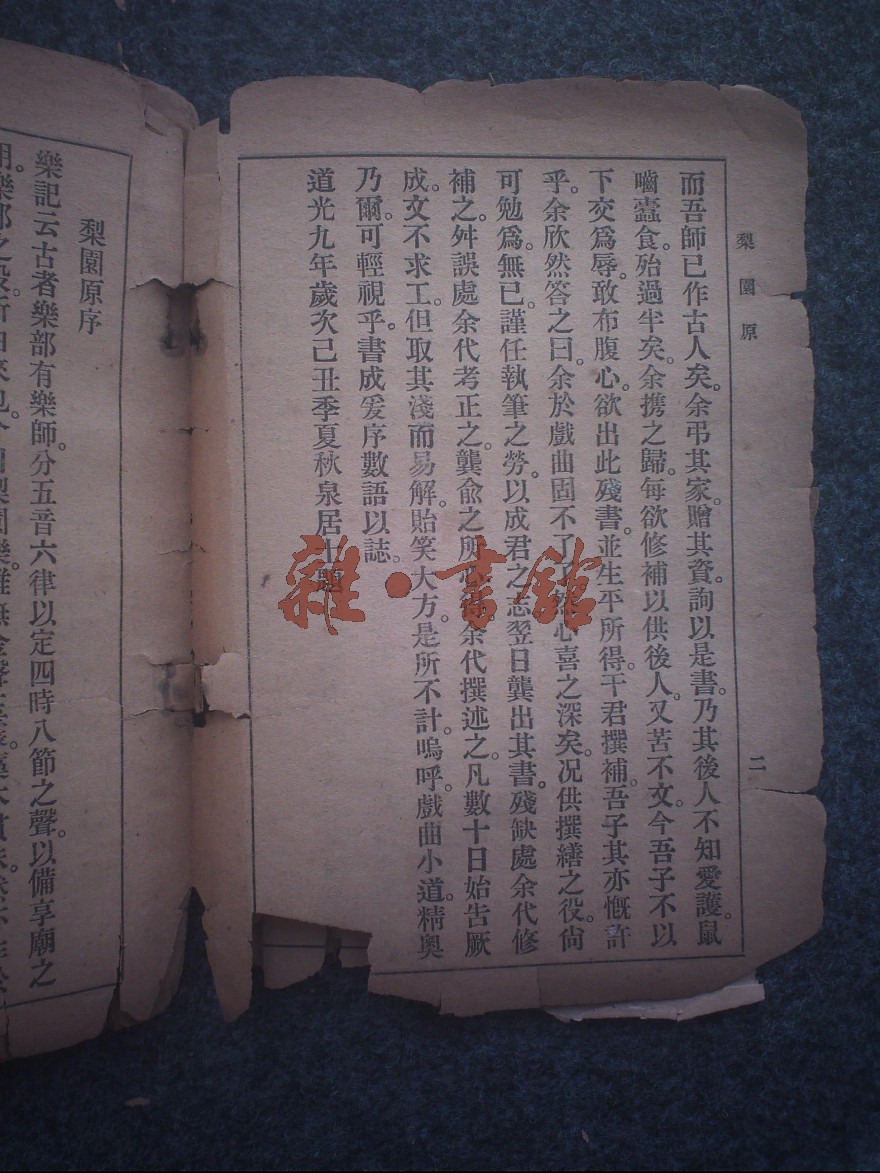 梨園原
二
而吾師已作古人矣。余弔其家。贈其資。詢以是書。乃其後人不知愛護。鼠
嚙蠹食。殆過半矣。余携之歸。每欲修補以供後人。又苦不文。今吾子不以
下交爲辱。敢布腹心。欲出此殘書。並生平所得。干君撰補。吾子其亦慨許
乎。余欣然答之曰。余於戲曲固不了了。然心喜之深矣。况供撰繕之役。尙
可勉爲。無已。謹任執筆之勞。以成君之志。翌日龔出其書。殘缺處余代修
補之。舛誤處余代考正之。龔兪之所心得。余代撰述之。凡數十日始告厥
成。文不求工。但取其淺而易解。貽笑大方。是所不計。嗚呼。戲曲小道。精奧
乃爾。可輕視乎。書成爰序數語以誌。
道光九年歲次己丑季夏秋泉居士題
梨園原序
樂記云古者樂部有樂師。分五音六律以定四時八節之聲。以備享廟之
雜·書館